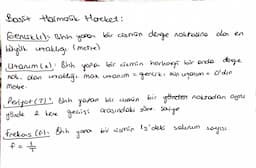 Basit Harmonik Hareket:
Genlik(r): Bhh yapan bir cismin denge noktasına olan en
büyük uzaklığı (metre)
Uzanım(x): Bhh yapan bir cismin herhangi bir anda denge
nok. olan uzaklığı. max uzanım = genlik. min uzanım = 0'dır
metre.
Periyot(T): Bhh yapan bir cismin bir noktadan aynı
yönde 2 kere geçişi arasındaki süre. saniye
Frekans(f): Bhh yapan bir cismin 1s'deki salınım sayısı
f = 1/T